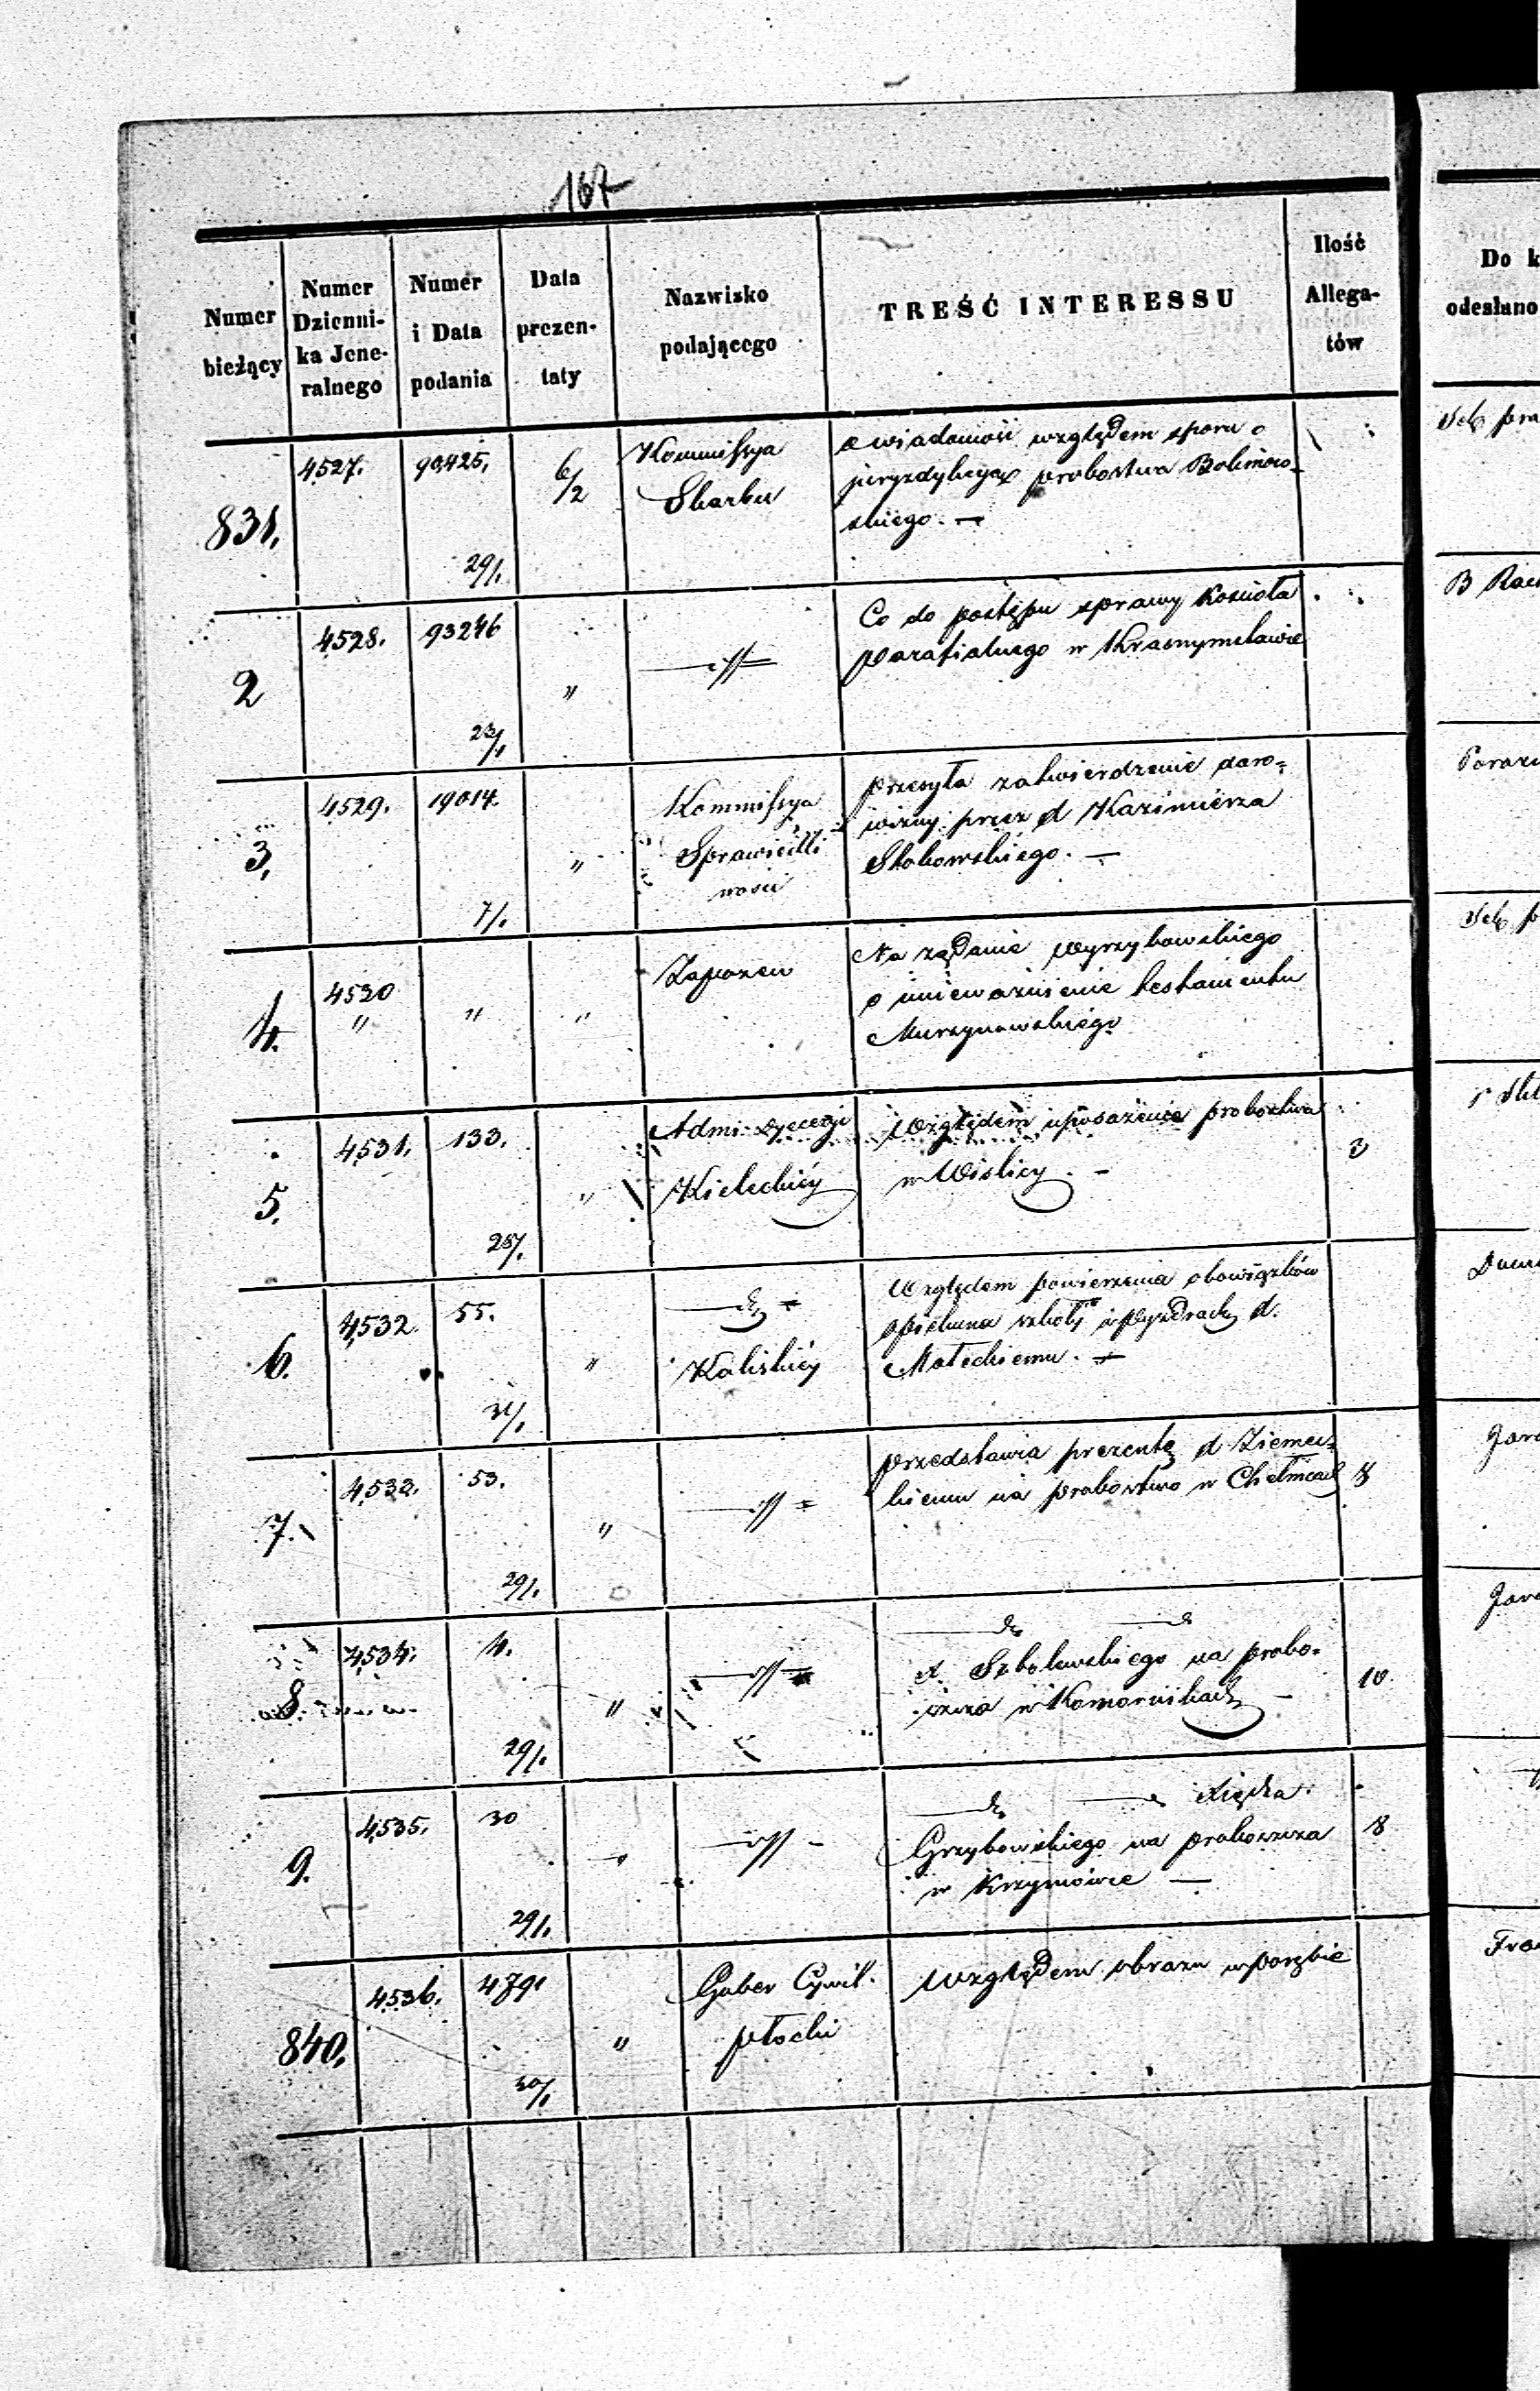 167
Numer bieżący
Numer Dzienni-
ka Jene-
ralnego
Numer i Data podania
Data prezen-
taty
Nazwisko podającego
TREŚĆ INTERESSU
Ilość Allega-
tów
Do k
odesłano
831. 4527. 90,425. 29/1. 6/2
Kommissya
Skarbu
o wiadomość względem sporu o
probostwa Bolimow-
skiego. —
2 4528. 93246 23/1 "
Co do postępu sprawy Kościoła
parafialnego w Krasnymstawie
3. 4529. 19014. 7/1. "
Kommissya
Sprawiedli
wości
przesyła zatwierdzenie daro-
wizny przez d Kazimierza
Skokowskiego. —
4. 4530 " " "
Na żądanie Wyrzykowskiego
o unieważnienie testamentu
Murzynowskiego
5. 4531. 133. "
Admi. Dyecezji
Kieleckiéj
Względem uposażenia probostwa
w Wiślicy. —
3
6. 4532. 55. 31/1 "
Kaliskiéj
Względem powierzenia obowiązków
opiekuna szkoły w Pyzdrach d.
Małeckiemu. —
7. 53. 29/1. "
przedstawia prezentę d Ziemec-
kiemu na probostwo w Chełmcach
8
8. 4534. 4. 29/1. "
x. Szkolewskiego na probo-
szcza w Komornikach —
10.
9. 4535. 30 29/1. "
Xiędza
Grzybowskiego na proboszcza
w Krzymówie —
8
840. 4536. 4791 30/1 "
Guber Cywil.
Płocki
Względem obrazu w Porębie